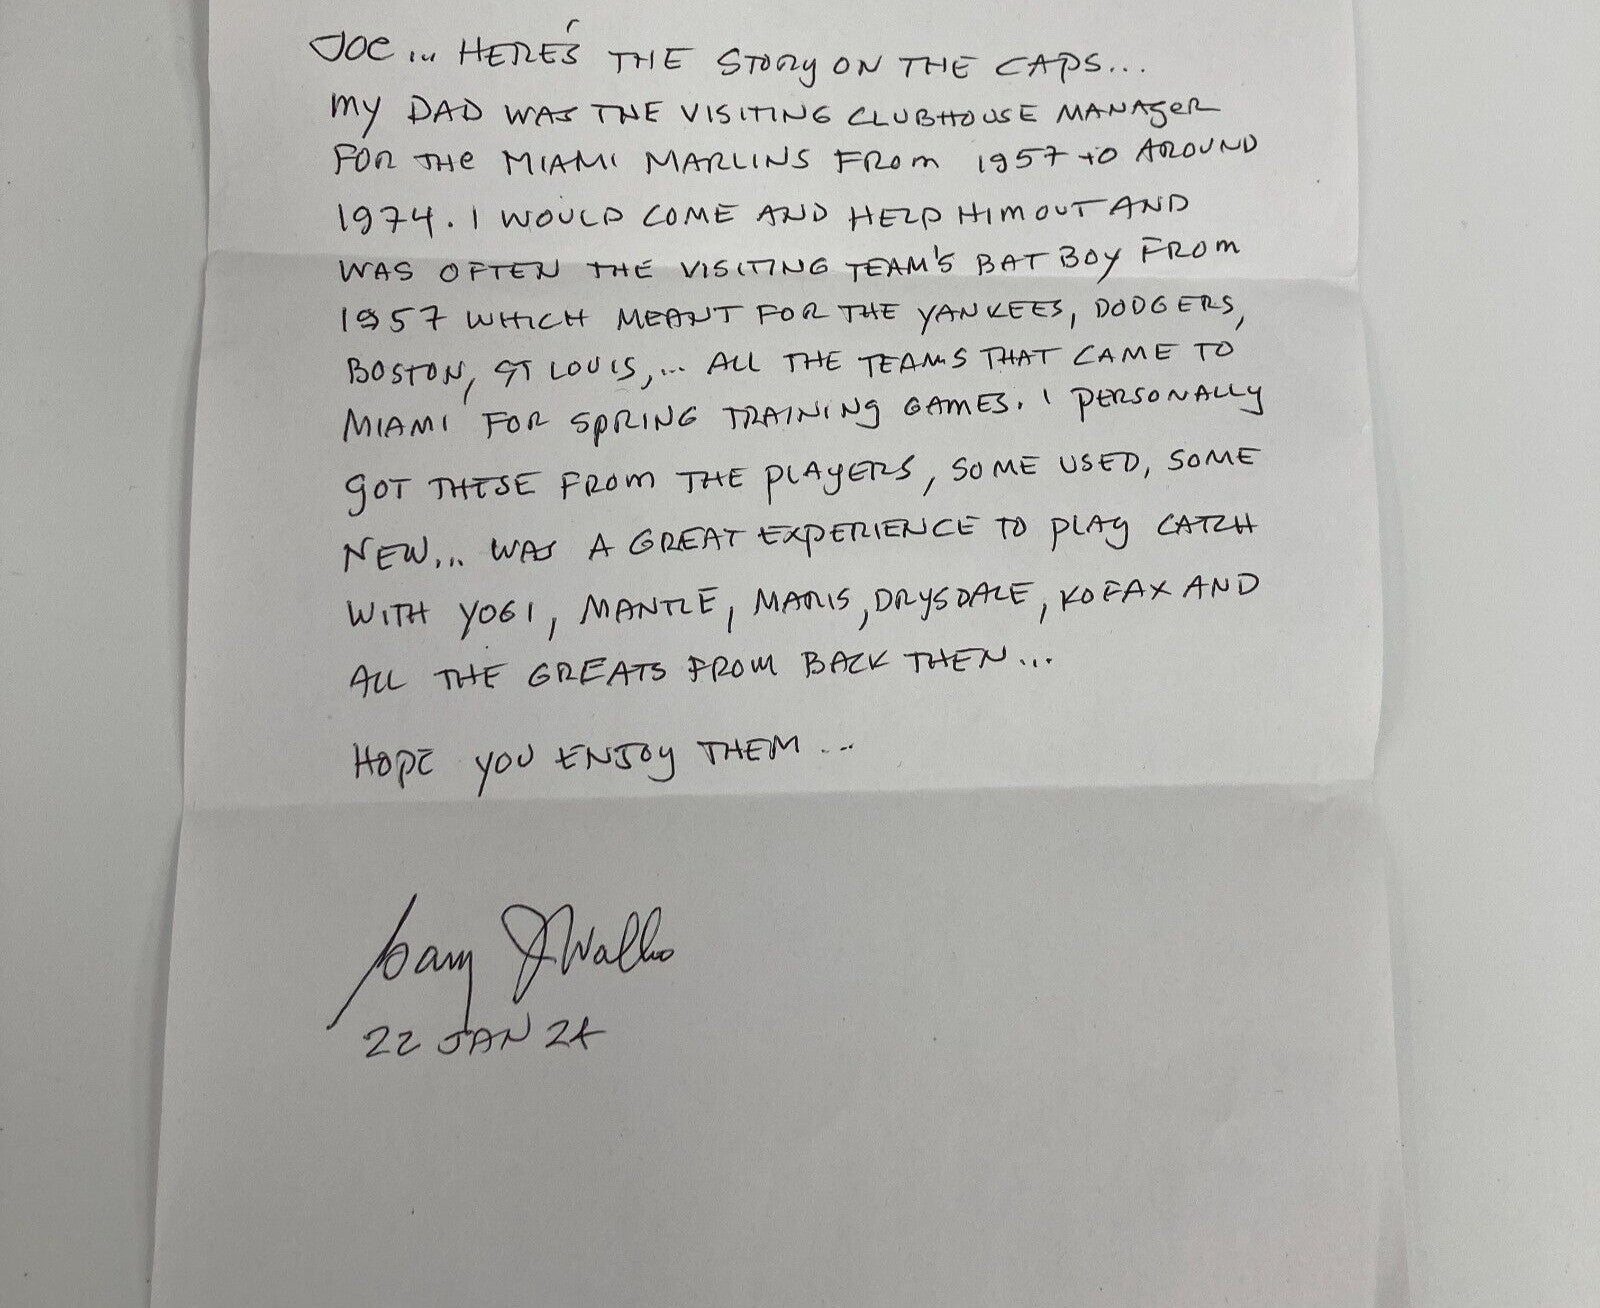 JOE... HERE'S THE STORY ON THE CAPS...
MY DAD WAS THE VISITING CLUBHOUSE MANAGER
FOR THE MIAMI MARLINS FROM 1957 TO AROUND
1974. I WOULD COME AND HELP HIM OUT AND
WAS OFTEN THE VISITING TEAM'S BAT BOY FROM
1957 WHICH MEANT FOR THE YANKEES, DODGERS,
BOSTON, ST LOUIS,... ALL THE TEAMS THAT CAME TO
MIAMI FOR SPRING TRAINING GAMES. I PERSONALLY
GOT THESE FROM THE PLAYERS, SOME USED, SOME
NEW... WAS A GREAT EXPERIENCE TO PLAY CATCH
WITH YOGI, MANTLE, MARIS, DRYSDALE, KOFAX AND
ALL THE GREATS FROM BACK THEN...
HOPE YOU ENJOY THEM...
Gary J
22 JAN 24